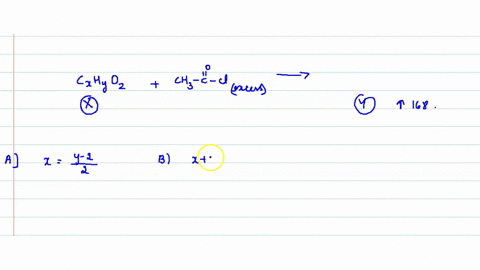 CxHyO2 + CH3-C(=O)-Cl (excess) ⟶
X Y ↑ 168.
A] x = (y-2)/2 B) x+